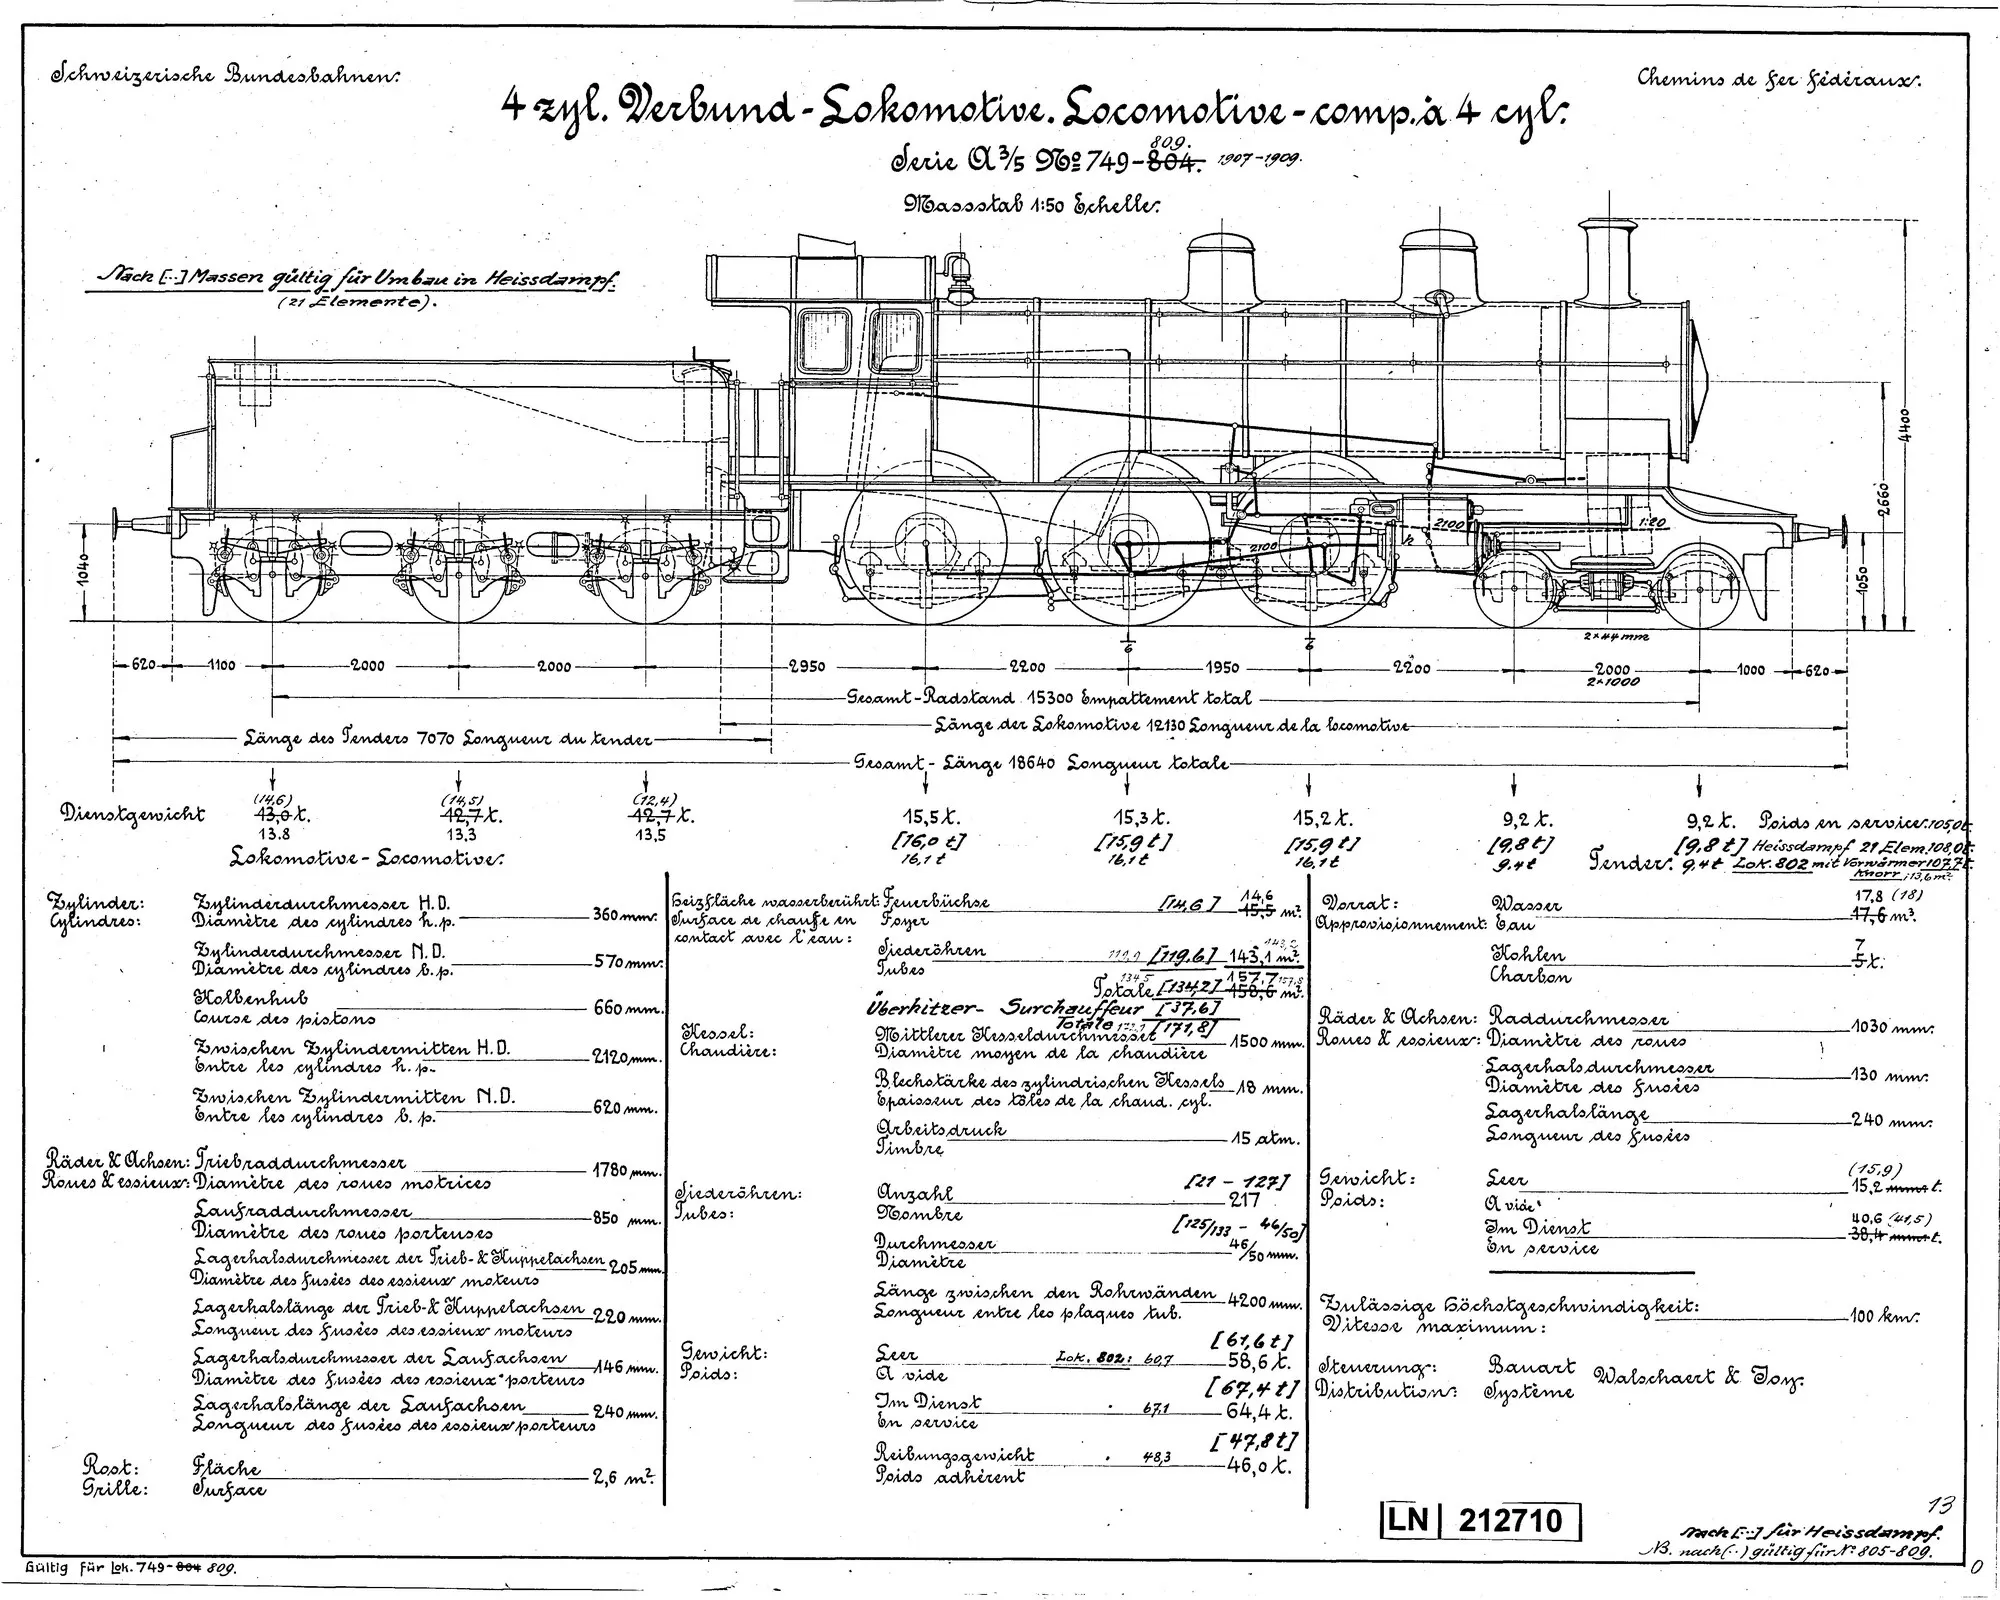 Schweizerische Bundesbahnen.
Chemins de fer fédéraux.
4 zyl. Verbund-Lokomotive. Locomotive-comp. à 4 cyl.
809.
Serie A 3/5 No 749-804. 1907-1909.
Massstab 1:50 Echelle.
Nach [··] Massen gültig für Umbau in Heissdampf.
(21 Elemente).
4400
2660
1040
1050
2100
1:20
2100
h
2×44 mm
6
6
620
1100
2000
2000
2950
2200
1950
2200
2000
1000
620
2×1000
Gesamt-Radstand 15300 Empattement total
Länge der Lokomotive 12130 Longueur de la locomotive
Länge des Tenders 7070 Longueur du tender
Gesamt-Länge 18640 Longueur totale
(14,6) (14,5) (12,4)
Dienstgewicht 13,0 t. 12,7 t. 12,7 t. 15,5 t. 15,3 t. 15,2 t. 9,2 t. 9,2 t. Poids en service. 105,0t.
13.8 13,3 13,5 [16,0 t] [15,9 t] [15,9 t] [9,8 t] [9,8 t] Heissdampf 21 Elem. 108,0t.
16,1 t 16,1 t 16,1 t 9.4t 9,4t Lok. 802 mit Vorwärmer 107,7t.
Knorr ; 13,6 m²
Lokomotive-Locomotive.
Zylinder: Zylinderdurchmesser H.D.
Cylindres: Diamètre des cylindres h.p. 360 mm.
Zylinderdurchmesser N.D.
Diamètre des cylindres b.p. 570 mm.
Kolbenhub
Course des pistons 660 mm.
Zwischen Zylindermitten H.D.
Entre les cylindres h.p. 2120 mm.
Zwischen Zylindermitten N.D.
Entre les cylindres b.p. 620 mm.
Räder & Achsen: Triebraddurchmesser
Roues & essieux: Diamètre des roues motrices 1780 mm.
Laufraddurchmesser
Diamètre des roues porteuses 850 mm.
Lagerhalsdurchmesser der Trieb- & Kuppelachsen
Diamètre des fusées des essieux moteurs 205 mm.
Lagerhalslänge der Trieb- & Kuppelachsen
Longueur des fusées des essieux moteurs 220 mm.
Lagerhalsdurchmesser der Laufachsen
Diamètre des fusées des essieux porteurs 146 mm.
Lagerhalslänge der Laufachsen
Longueur des fusées des essieux porteurs 240 mm.
Rost: Fläche
Grille: Surface 2,6 m².
Heizfläche wasserberührt: Feuerbüchse [14,6] 14,6 15,5 m².
Surface de chauffe en Foyer
contact avec l'eau:
Siederöhren 119,9 [119,6] 143,1 m².
Tubes
134,5 157,7
Totale [134,2] 158,6 m².
Überhitzer- Surchauffeur [37,6]
Totale [171,8]
Kessel: Mittlerer Kesseldurchmesser 1500 mm.
Chaudière: Diamètre moyen de la chaudière
Blechstärke des zylindrischen Kessels 18 mm.
Epaisseur des tôles de la chaud. cyl.
Arbeitsdruck 15 atm.
Timbre
[21 - 127]
Siederöhren: Anzahl 217
Tubes: Nombre
[125/133 - 46/50]
Durchmesser 46/50 mm.
Diamètre
Länge zwischen den Rohrwänden 4200 mm.
Longueur entre les plaques tub.
[61,6 t]
Gewicht: Leer Lok. 802: 60,7 58,6 t.
Poids: A vide
[67,4 t]
Im Dienst 67.1 64,4 t.
En service
[47,8 t]
Reibungsgewicht 48,3 46,0 t.
Poids adhérent
Tender.
17,8 (18)
Vorrat: Wasser
Approvisionnement: Eau 17,6 m³.
7
Kohlen 5 t.
Charbon
Räder & Achsen: Raddurchmesser
Roues & essieux: Diamètre des roues 1030 mm.
Lagerhalsdurchmesser
Diamètre des fusées 130 mm.
Lagerhalslänge
Longueur des fusées 240 mm.
(15,9)
Gewicht: Leer 15,2 t.
Poids: A vide
40,6 (41,5)
Im Dienst 38,4 t.
En service
Zulässige Höchstgeschwindigkeit:
Vitesse maximum: 100 km.
Steuerung: Bauart Walschaert & Joy.
Distribution: Système
LN 212710
13
Nach [··] für Heissdampf.
NB. nach (··) gültig für No 805-809.
Gültig für Lok. 749-804 809.
0